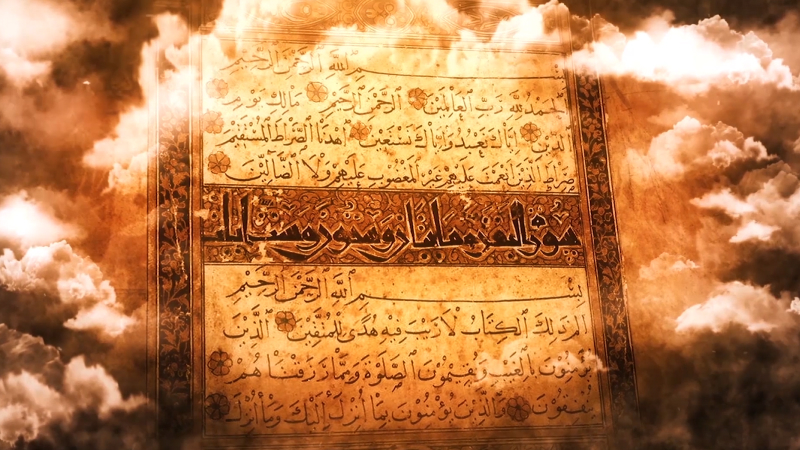 بسم الله الرحمن الرحيم
الحمد لله رب العالمين الرحمن الرحيم مالك يوم
الدين إياك نعبد وإياك نستعين اهدنا الصراط المستقيم
صراط الذين أنعمت عليهم غير المغضوب عليهم ولا الضالين
سورة البقرة
بسم الله الرحمن الرحيم
الم ذلك الكتاب لا ريب فيه هدى للمتقين الذين
يؤمنون بالغيب ويقيمون الصلوة ومما رزقناهم
ينفقون والذين يؤمنون بما أنزل إليك وما أنزل